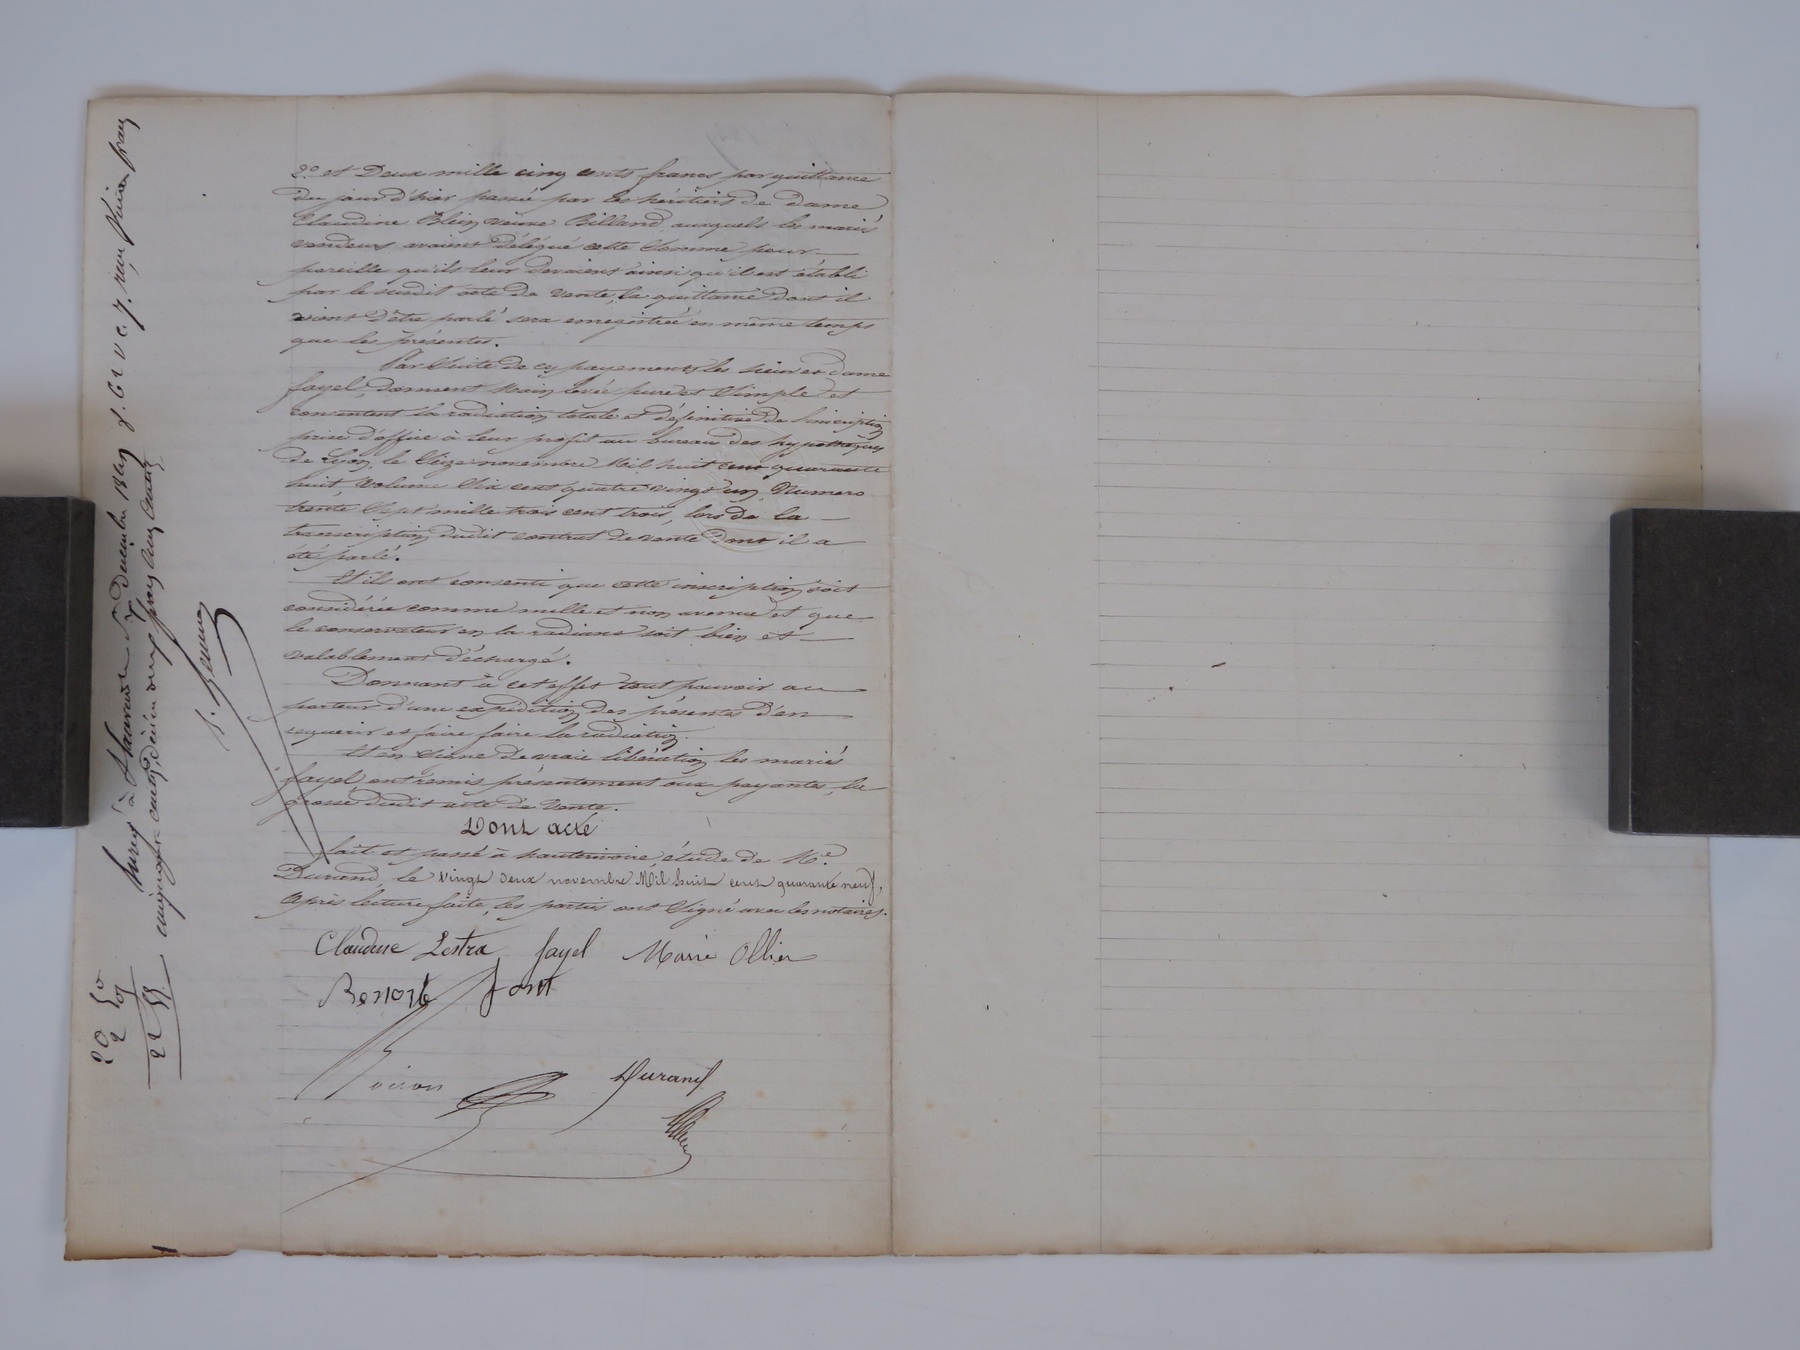 2.o et Deux mille cinq cents francs par quittance
du jour d'hier passée par les héritiers de Dame
Claudine Blein veuve Billand, auxquels les mariés
vendeurs avaient délégué cette Somme pour
pareille qu'ils leur devaient ainsi qu'il est établi
par le susdit acte de vente, la quittance dont il
vient d'être parlé sera enregistrée en même temps
que les présentes.
Par Suite de ces payements les sieur et dame
fayel, donnent Main levée pure et Simple et
consentent la radiation totale et définitive de l'inscription
prise d'office à leur profit au bureau des hypothèques
de Lyon, le Seize novembre Mil huit cent quarante
huit, Volume Six cent quatre vingt un, Numero
trente Sept mille trois cent trois, lors de la
transcription dudit contrat de vente dont il a
été parlé.
Et ils ont consenti que cette inscription soit
considérée comme nulle et non avenue et que
le conservateur en la radiant soit bien et
valablement déchargé.
Donnant à cet effet tout pouvoir au
porteur d'une expédition des présentes d'en
requérir et faire faire la radiation.
Et en Signe de vraie libération, les mariés
fayel, ont remis présentement aux payantes, la
grosse dudit acte de Vente.
Dont acte
fait et passé à hauterivoire, étude de Me
Durand, le vingt deux novembre Mil huit cent quarante neuf,
Après lecture faite, les parties ont Signé avec les notaires.
Claudine Lestra fayel Marie Ollier
Benoite font
Voiron Durand
à St Laurent de Décembre 1849 f. 61 v c 7. reçu
20 50
2 05
22 55